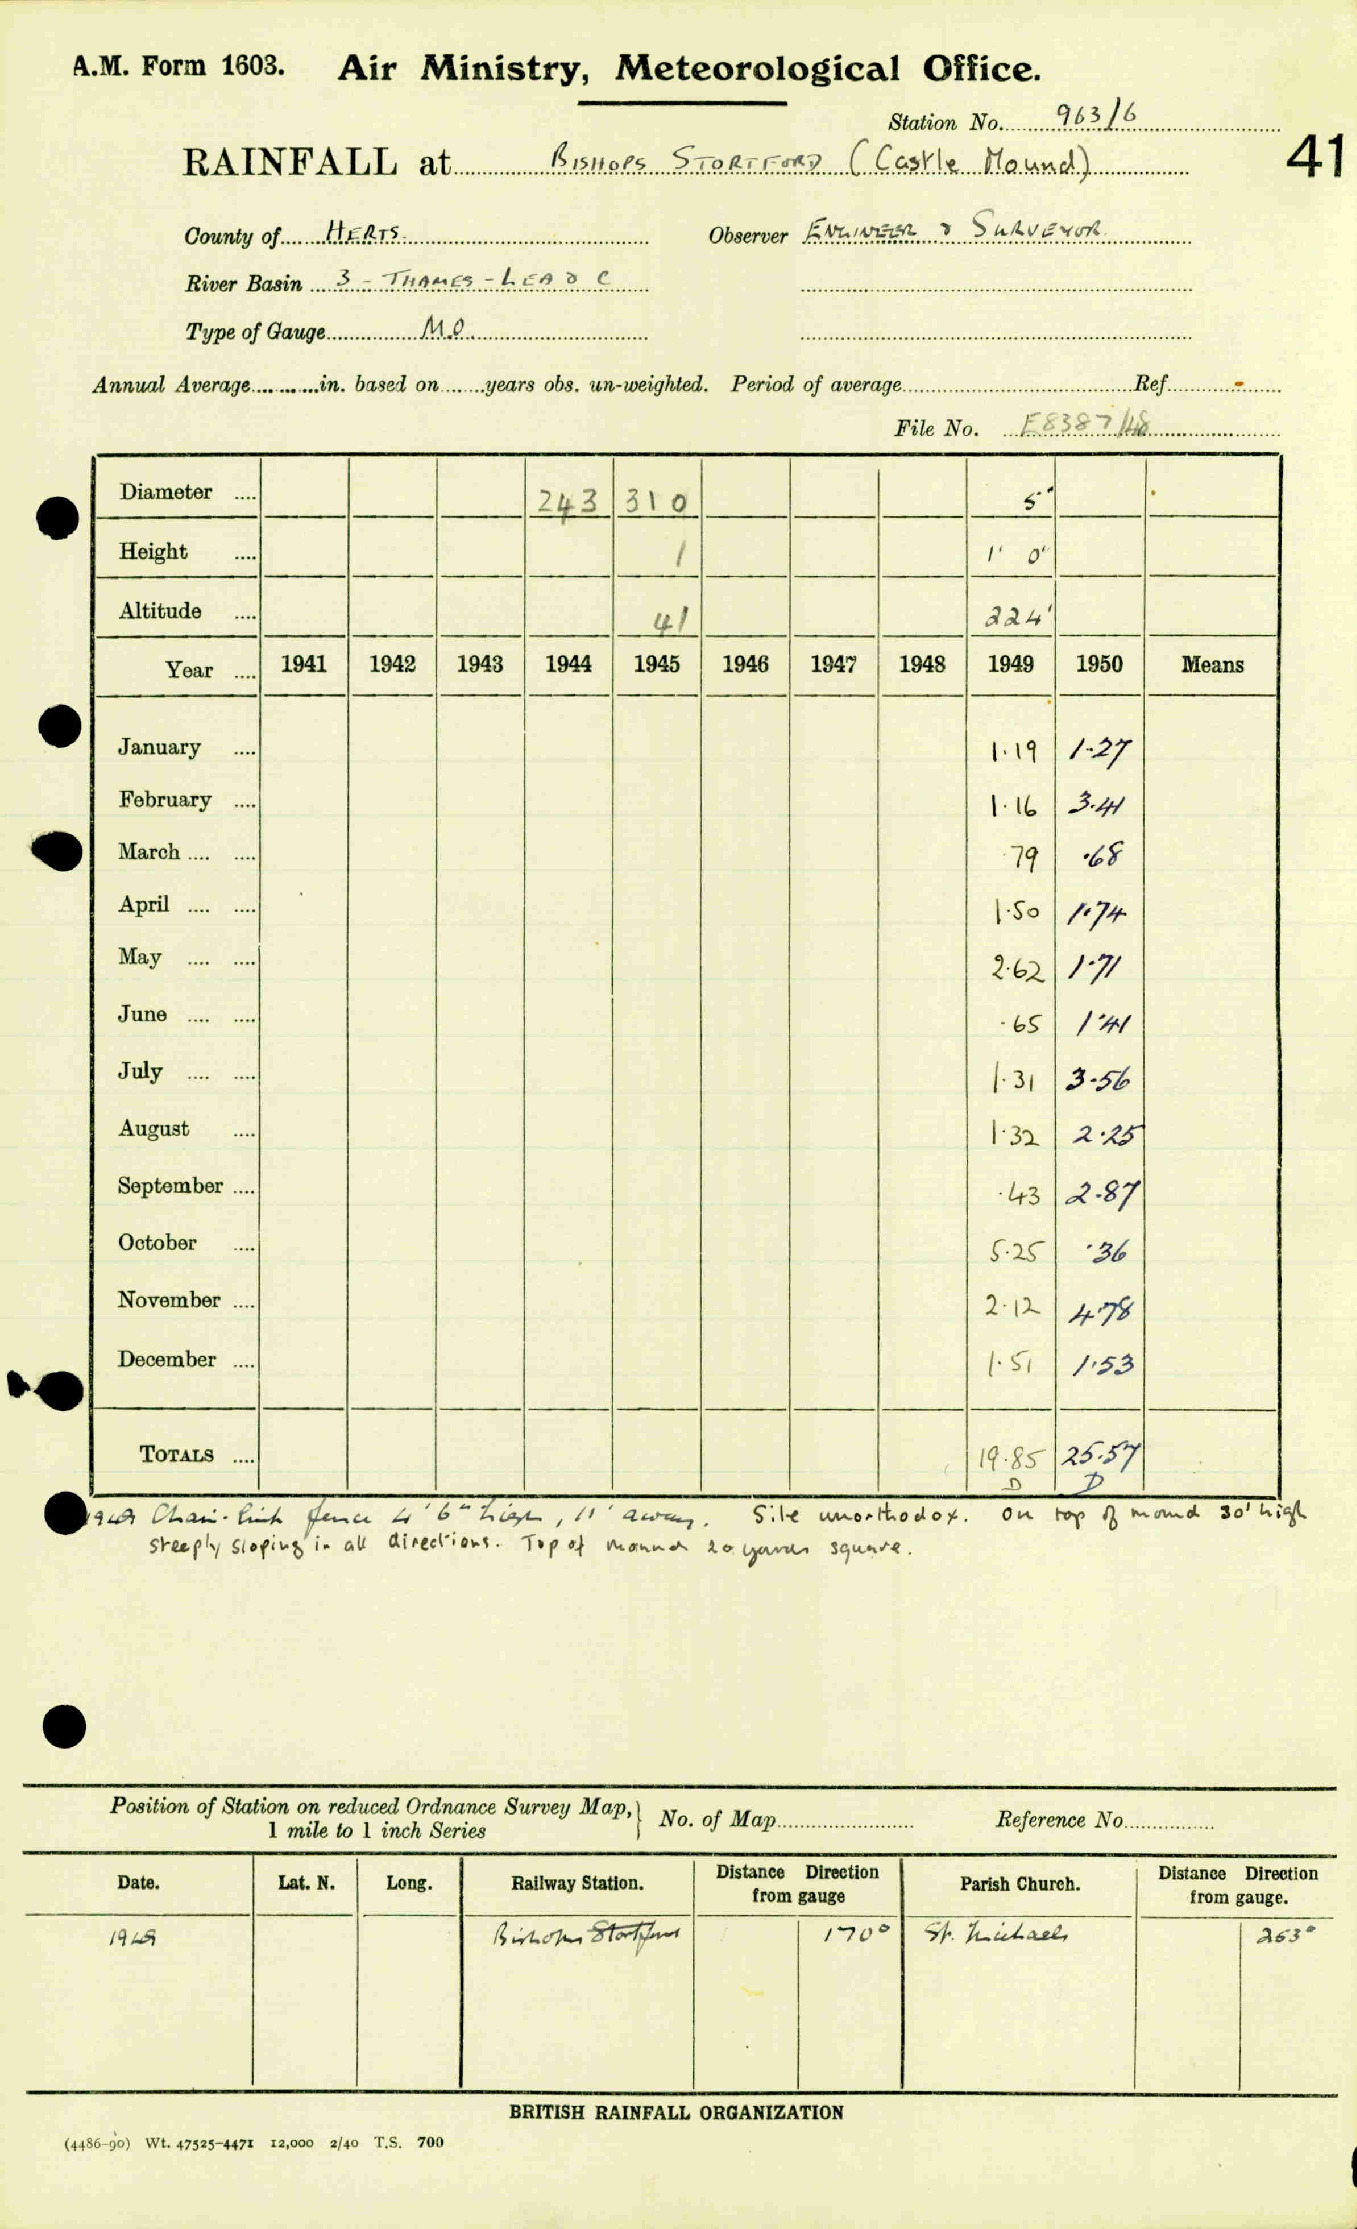 A.M. Form 1603. Air Ministry, Meteorological Office.
Station No. 963/6
41
RAINFALL at BISHOPS STORTFORD (Castle Mound)
County of HERTS. Observer ENGINEER & SURVEYOR
River Basin 3 - THAMES - LEA & C
Type of Gauge M.O.
Annual Average in. based on years obs. un-weighted. Period of average Ref
File No. E8387/48
Diameter .... 243 310 5"
Height .... 1 1' 0"
Altitude .... 41 224'
Year .... 1941 1942 1943 1944 1945 1946 1947 1948 1949 1950 Means
January .... 1.19 1.27
February .... 1.16 3.41
March .... .... .79 .68
April .... .... 1.50 1.74
May .... .... 2.62 1.71
June .... .... .65 1.41
July .... .... 1.31 3.56
August .... 1.32 2.25
September .... .43 2.87
October .... 5.25 .36
November .... 2.12 4.78
December .... 1.51 1.53
TOTALS .... 19.85 25.57
D D
Chain-link fence 4' 6" high, 11' away. Site unorthodox. On top of mound 30' high
steeply sloping in all directions. Top of mound 20 yards square.
Position of Station on reduced Ordnance Survey Map, } No. of Map Reference No.
1 mile to 1 inch Series
Date. Lat. N. Long. Railway Station. Distance Direction from gauge Parish Church. Distance Direction from gauge.
Bishops Stortford 170° St. Michaels 253°
BRITISH RAINFALL ORGANIZATION
(4486-90) Wt. 47525-4471 12,000 2/40 T.S. 700